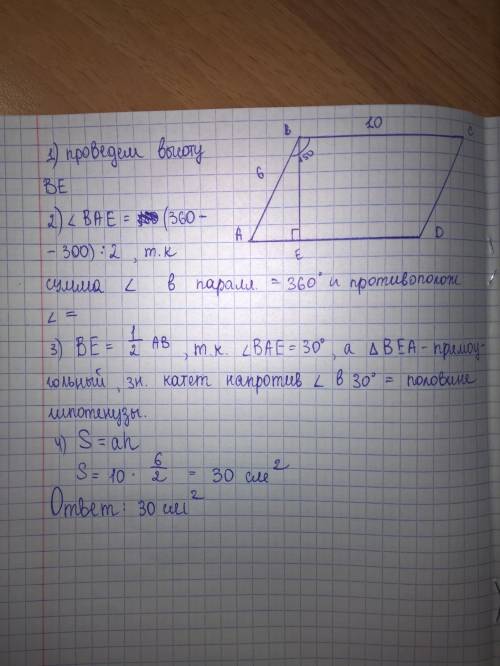 B 10 C
1) проведем высоту
150
BE
6
2) ∠ BAE = (360 -
A D
- 300) : 2 , т.к
E
сумма ∠ в паралл. = 360° и противополож
∠ =
3) BE = 1/2 AB , т.к. ∠BAE = 30°, а ΔBEA - прямоу-
гольный, зн. катет напротив ∠ в 30° = половине
гипотенузы.
4) S = ah
S = 10 · 6/2 = 30 см²
Ответ: 30 см²